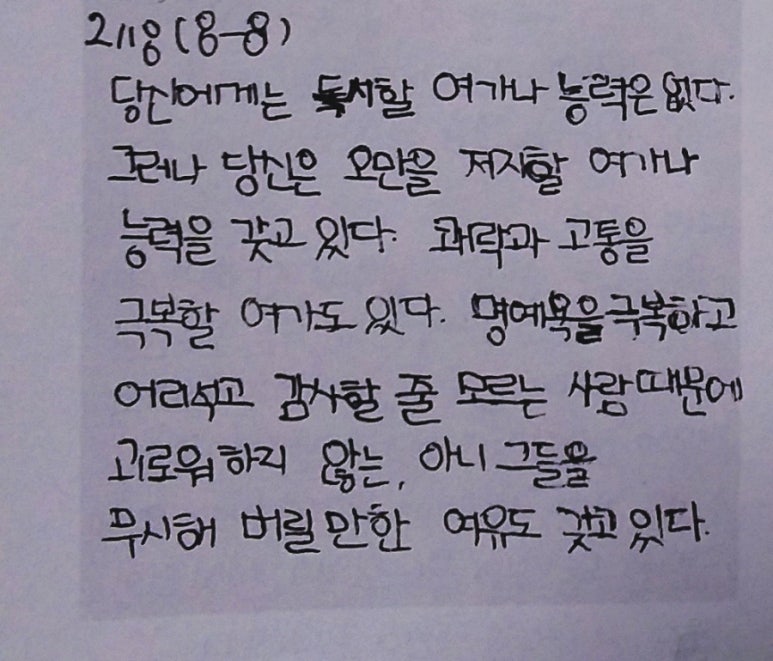 218 (8-8)
당신에게는 독서할 여가나 능력은 없다.
그러나 당신은 오만을 저지할 여가나
능력을 갖고 있다. 쾌락과 고통을
극복할 여가도 있다. 명예욕을 극복하고
어리석고 감사할 줄 모르는 사람때문에
괴로워하지 않는, 아니 그들을
무시해 버릴 만한 여유도 갖고 있다.